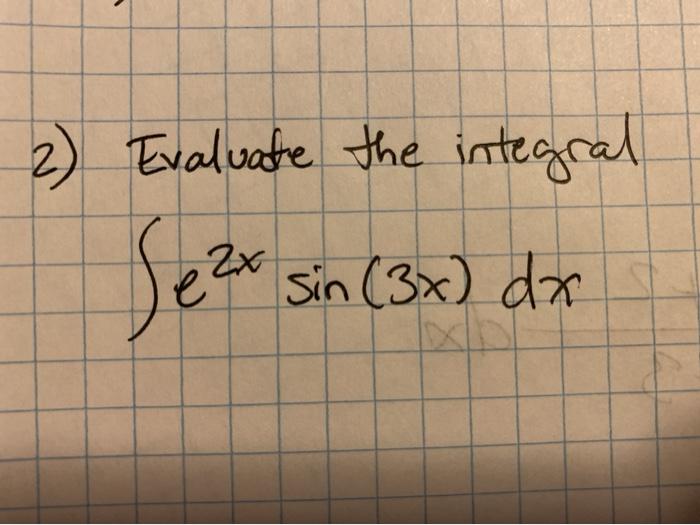 2) Evaluate the integral
∫e^{2x} sin(3x) dx